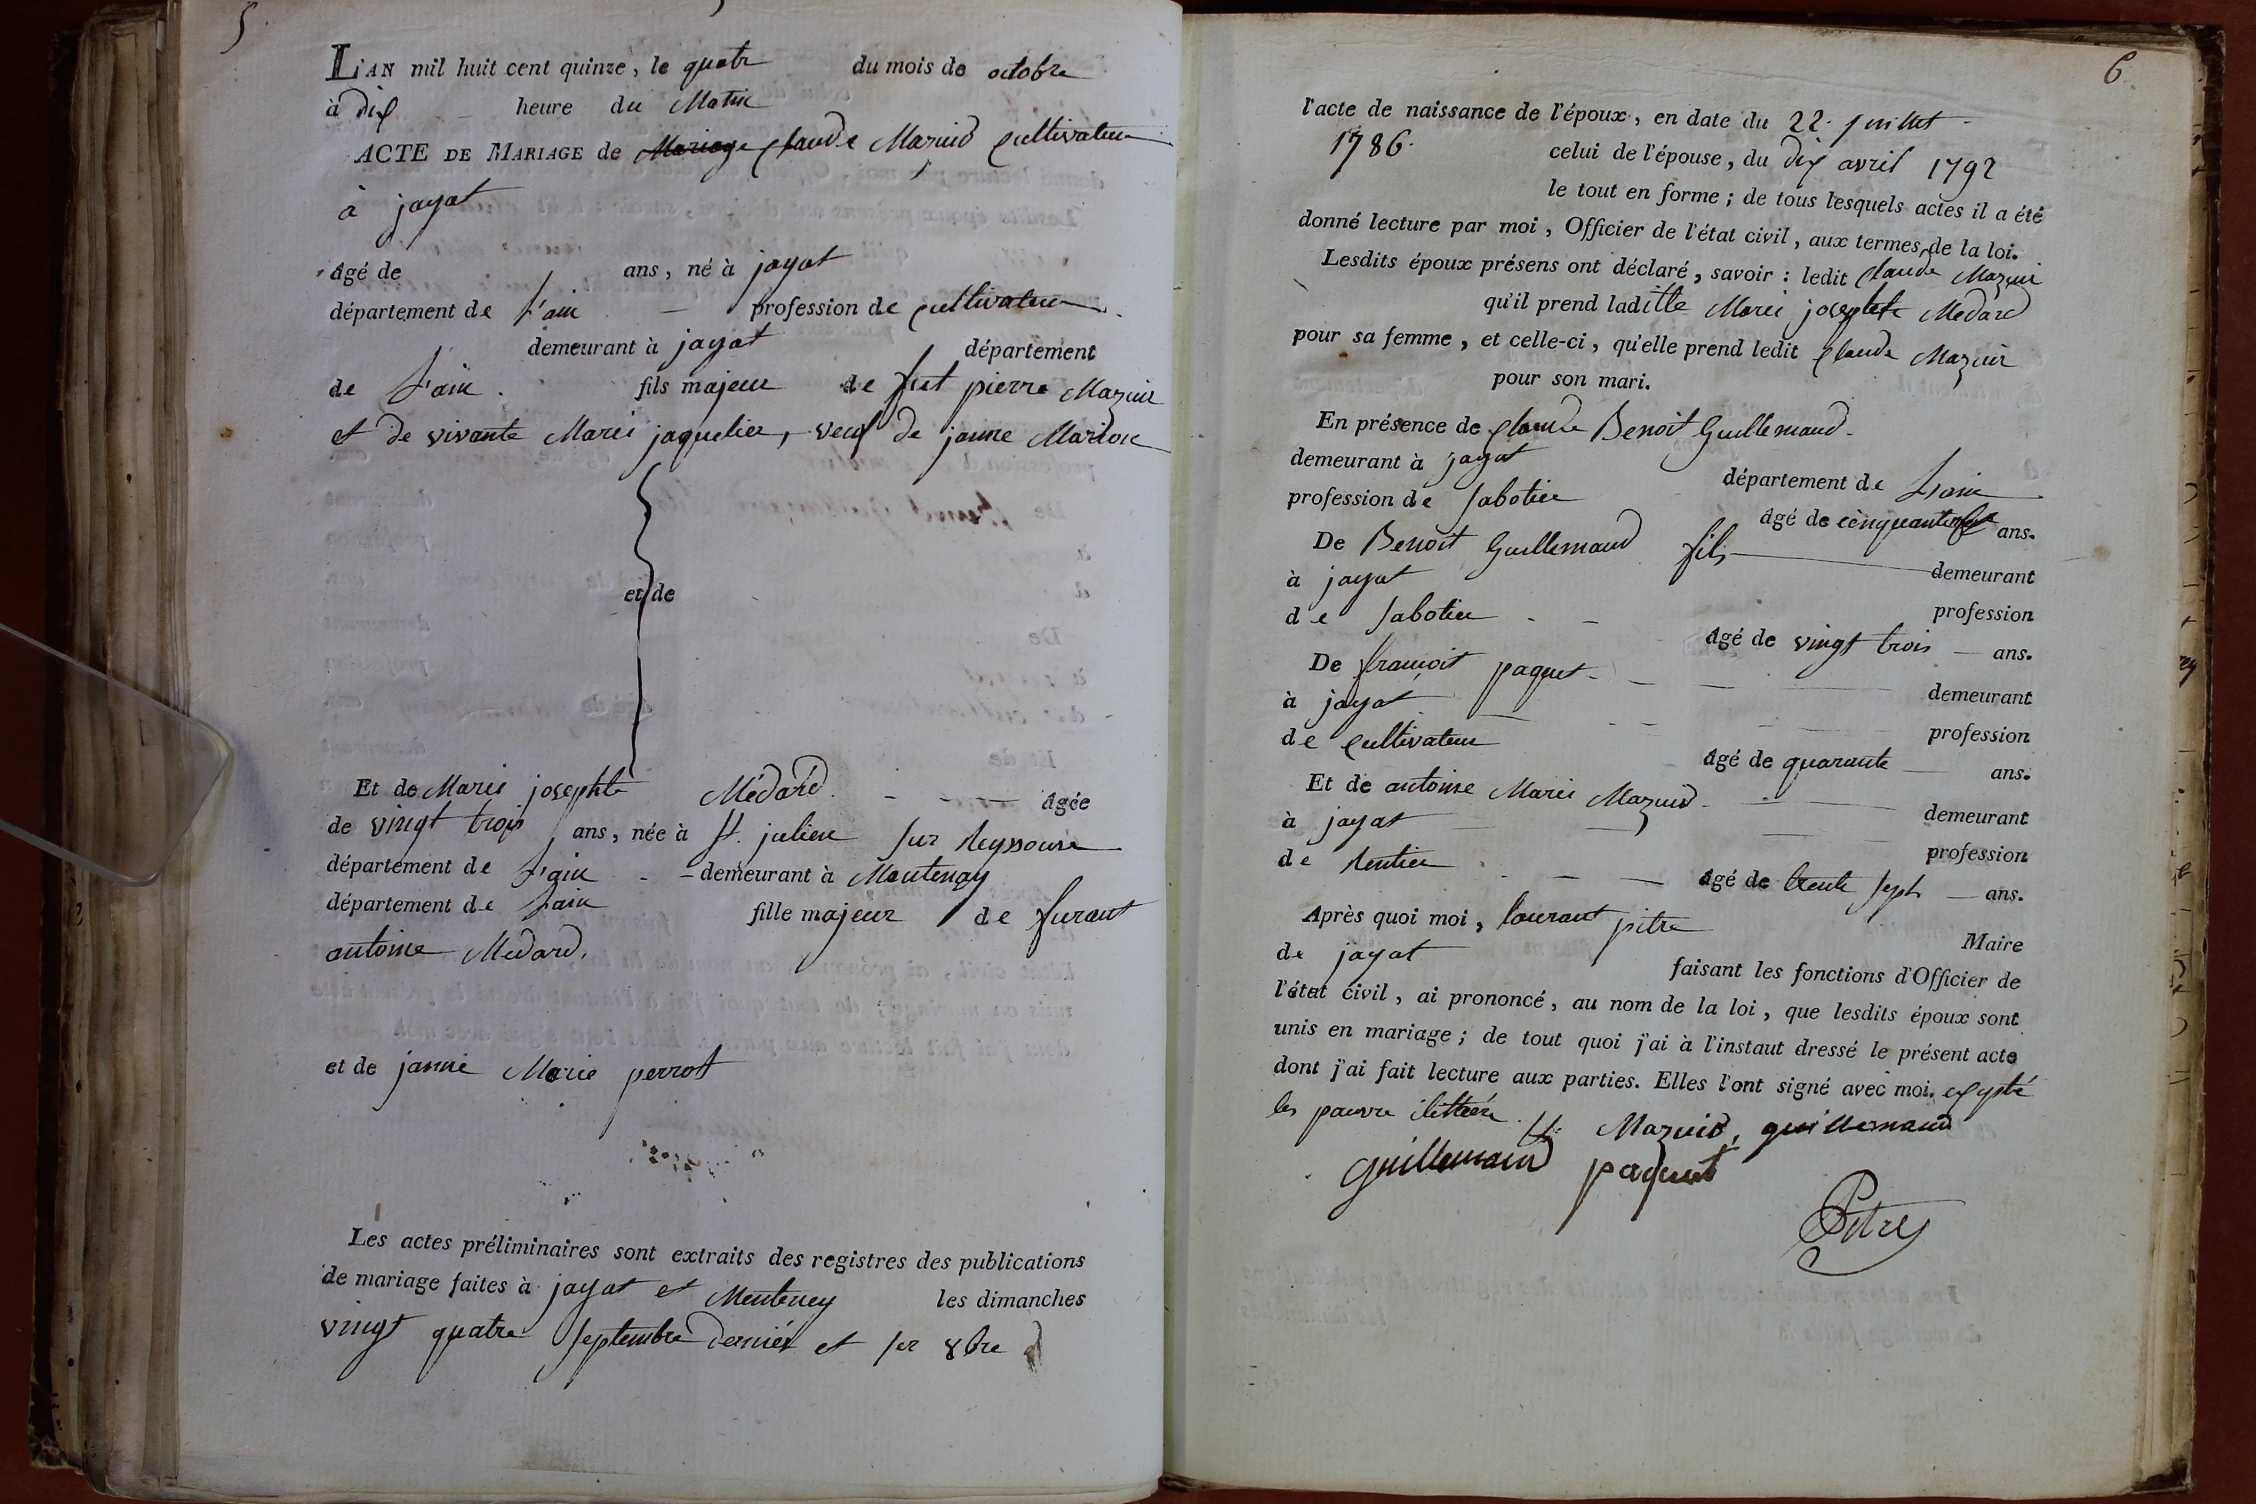 5
L'AN mil huit cent quinze, le quatre du mois de octobre
à dix heure du Matin
ACTE DE MARIAGE de Mariage Claude Mazuid Cultivateur
à jayat
Agé de ans, né à jayat
département de L'ain profession de Cultivateur
demeurant à jayat département
de L'ain fils majeur de fut pierre Mazuir
et de vivante Marie jaquelier, veuf de jeanne Mardon
et de
Et de Marie josephte Médard Agée
de vingt trois ans, née à St. julien sur Reyssouse
département de L'ain demeurant à Montenay
département de L'ain fille majeur de furant
antoine Medard.
et de janne Marie perrot
Les actes préliminaires sont extraits des registres des publications
de mariage faites à jayat et Menteney les dimanches
vingt quatre septembre dernier et 1er 8bre
6
l'acte de naissance de l'époux, en date du 22 juillet
1786. celui de l'épouse, du dix avril 1792
le tout en forme ; de tous lesquels actes il a été
donné lecture par moi, Officier de l'état civil, aux termes de la loi.
Lesdits époux présens ont déclaré, savoir : ledit Claude Mazuir
qu'il prend laditte Marie josephte Medard
pour sa femme, et celle-ci, qu'elle prend ledit Claude Mazuir
pour son mari.
En présence de Claude Benoit Guillemaud
demeurant à jayat département de L'ain
profession de Sabotier âgé de ans.
De Benoit Guillemaud fils demeurant
à jayat profession
de Sabotier âgé de vingt trois ans.
De françoit paquet demeurant
à jayat profession
de Cultivateur âgé de quarante ans.
Et de antoine Marie Mazuid demeurant
à jayat profession
de Rentier âgé de trente sept ans.
Après quoi moi, laurant pitre Maire
de jayat faisant les fonctions d'Officier de
l'état civil, ai prononcé, au nom de la loi, que lesdits époux sont
unis en mariage ; de tout quoi j'ai à l'instant dressé le présent acte
dont j'ai fait lecture aux parties. Elles l'ont signé avec moi. exepté
les
Mazuid, guillemaud
guillemaud paquet
Pitre